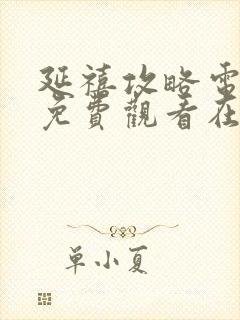 延禧攻略電
免費觀看在
单小夏